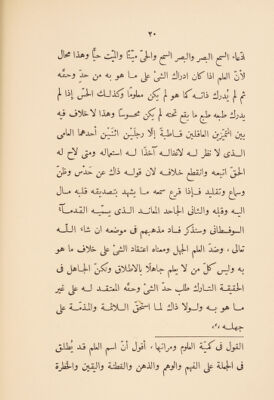 ٢٠
لذهباء السم البصر والبصر السمع والحىّ ميّتًا والميّت حيًّا وهذا محال
لأنّ العلم اذا كان ادراك الشىء على ما هو به من حدّه وحقّه
ثم لم يُدرك ذاته كما هو لم يكن معلومًا وكذلك الحسّ اذا لم
يدرك طبعه طبع ما يقع تحته لم يكن محسوسًا وهذا لا خلاف فيه
بين المميّزين العاقلين قاطبةً إلّا رجلَيْن اثنَيْن أحدهما العامى
الـذى لا نظر لـه لاغفاله آخذًا لـه استعماله ومتى لاح له
الحقّ اتبعه وانقطع خلافه لان قوله ذاك عن حَدْس وظنّ
وسماع وتقليد فإذا قرع سمعه ما يشهد بتصديقه قلبه مال
اليه وقبله والثانى الجاحد المعاند الـذى يسمّيـه القدمـاء
السوفسطائى وسنذكر فساد مذهبهم فى موضعه ان شاء اللّـه
تعالى، وضدّ العلم الجهل ومعناه اعتقاد الشىء على خلاف ما هو
به وليس كلّ من لا يعلم جاهلًا بالاطلاق ولكنّ الجاهل فى
الحقيقة التارك طلب حدّ الشىء وحقّه المعتقد لـه على غير
ما هو به ولـولا ذاك لمـا استحقّ اللائمـة والمذمّـة على
جهلـه
القول فى كميّة العلوم ومراتبها، أقول أنّ اسم العلم قد يُطلق
فى الجملة على الفهم والوهم والذهن والفطنة واليقين والخطرة